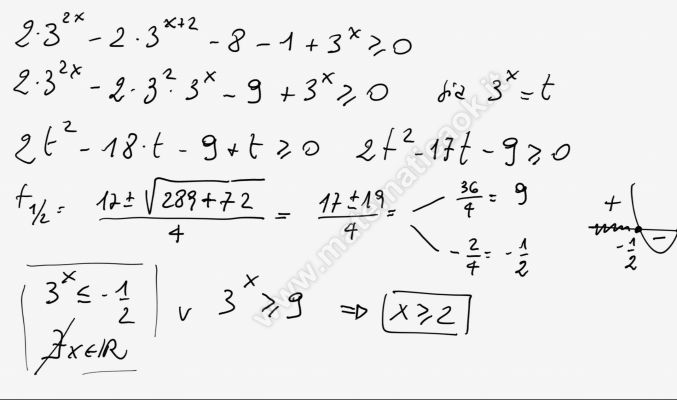 2·3^{2x} - 2·3^{x+2} - 8 - 1 + 3^x ≥ 0
2·3^{2x} - 2·3^2·3^x - 9 + 3^x ≥ 0 sia 3^x = t
2t^2 - 18·t - 9 + t ≥ 0 2t^2 - 17t - 9 ≥ 0
t_{1/2} = \frac{17 ± \sqrt{289 + 72}}{4} = \frac{17 ± 19}{4} = \frac{36}{4} = 9
-\frac{2}{4} = -\frac{1}{2}
+ - -\frac{1}{2}
3^x ≤ -\frac{1}{2} ∨ 3^x ≥ 9 ⇒ x ≥ 2
∄ x ∈ ℝ
www.matematicaok.it